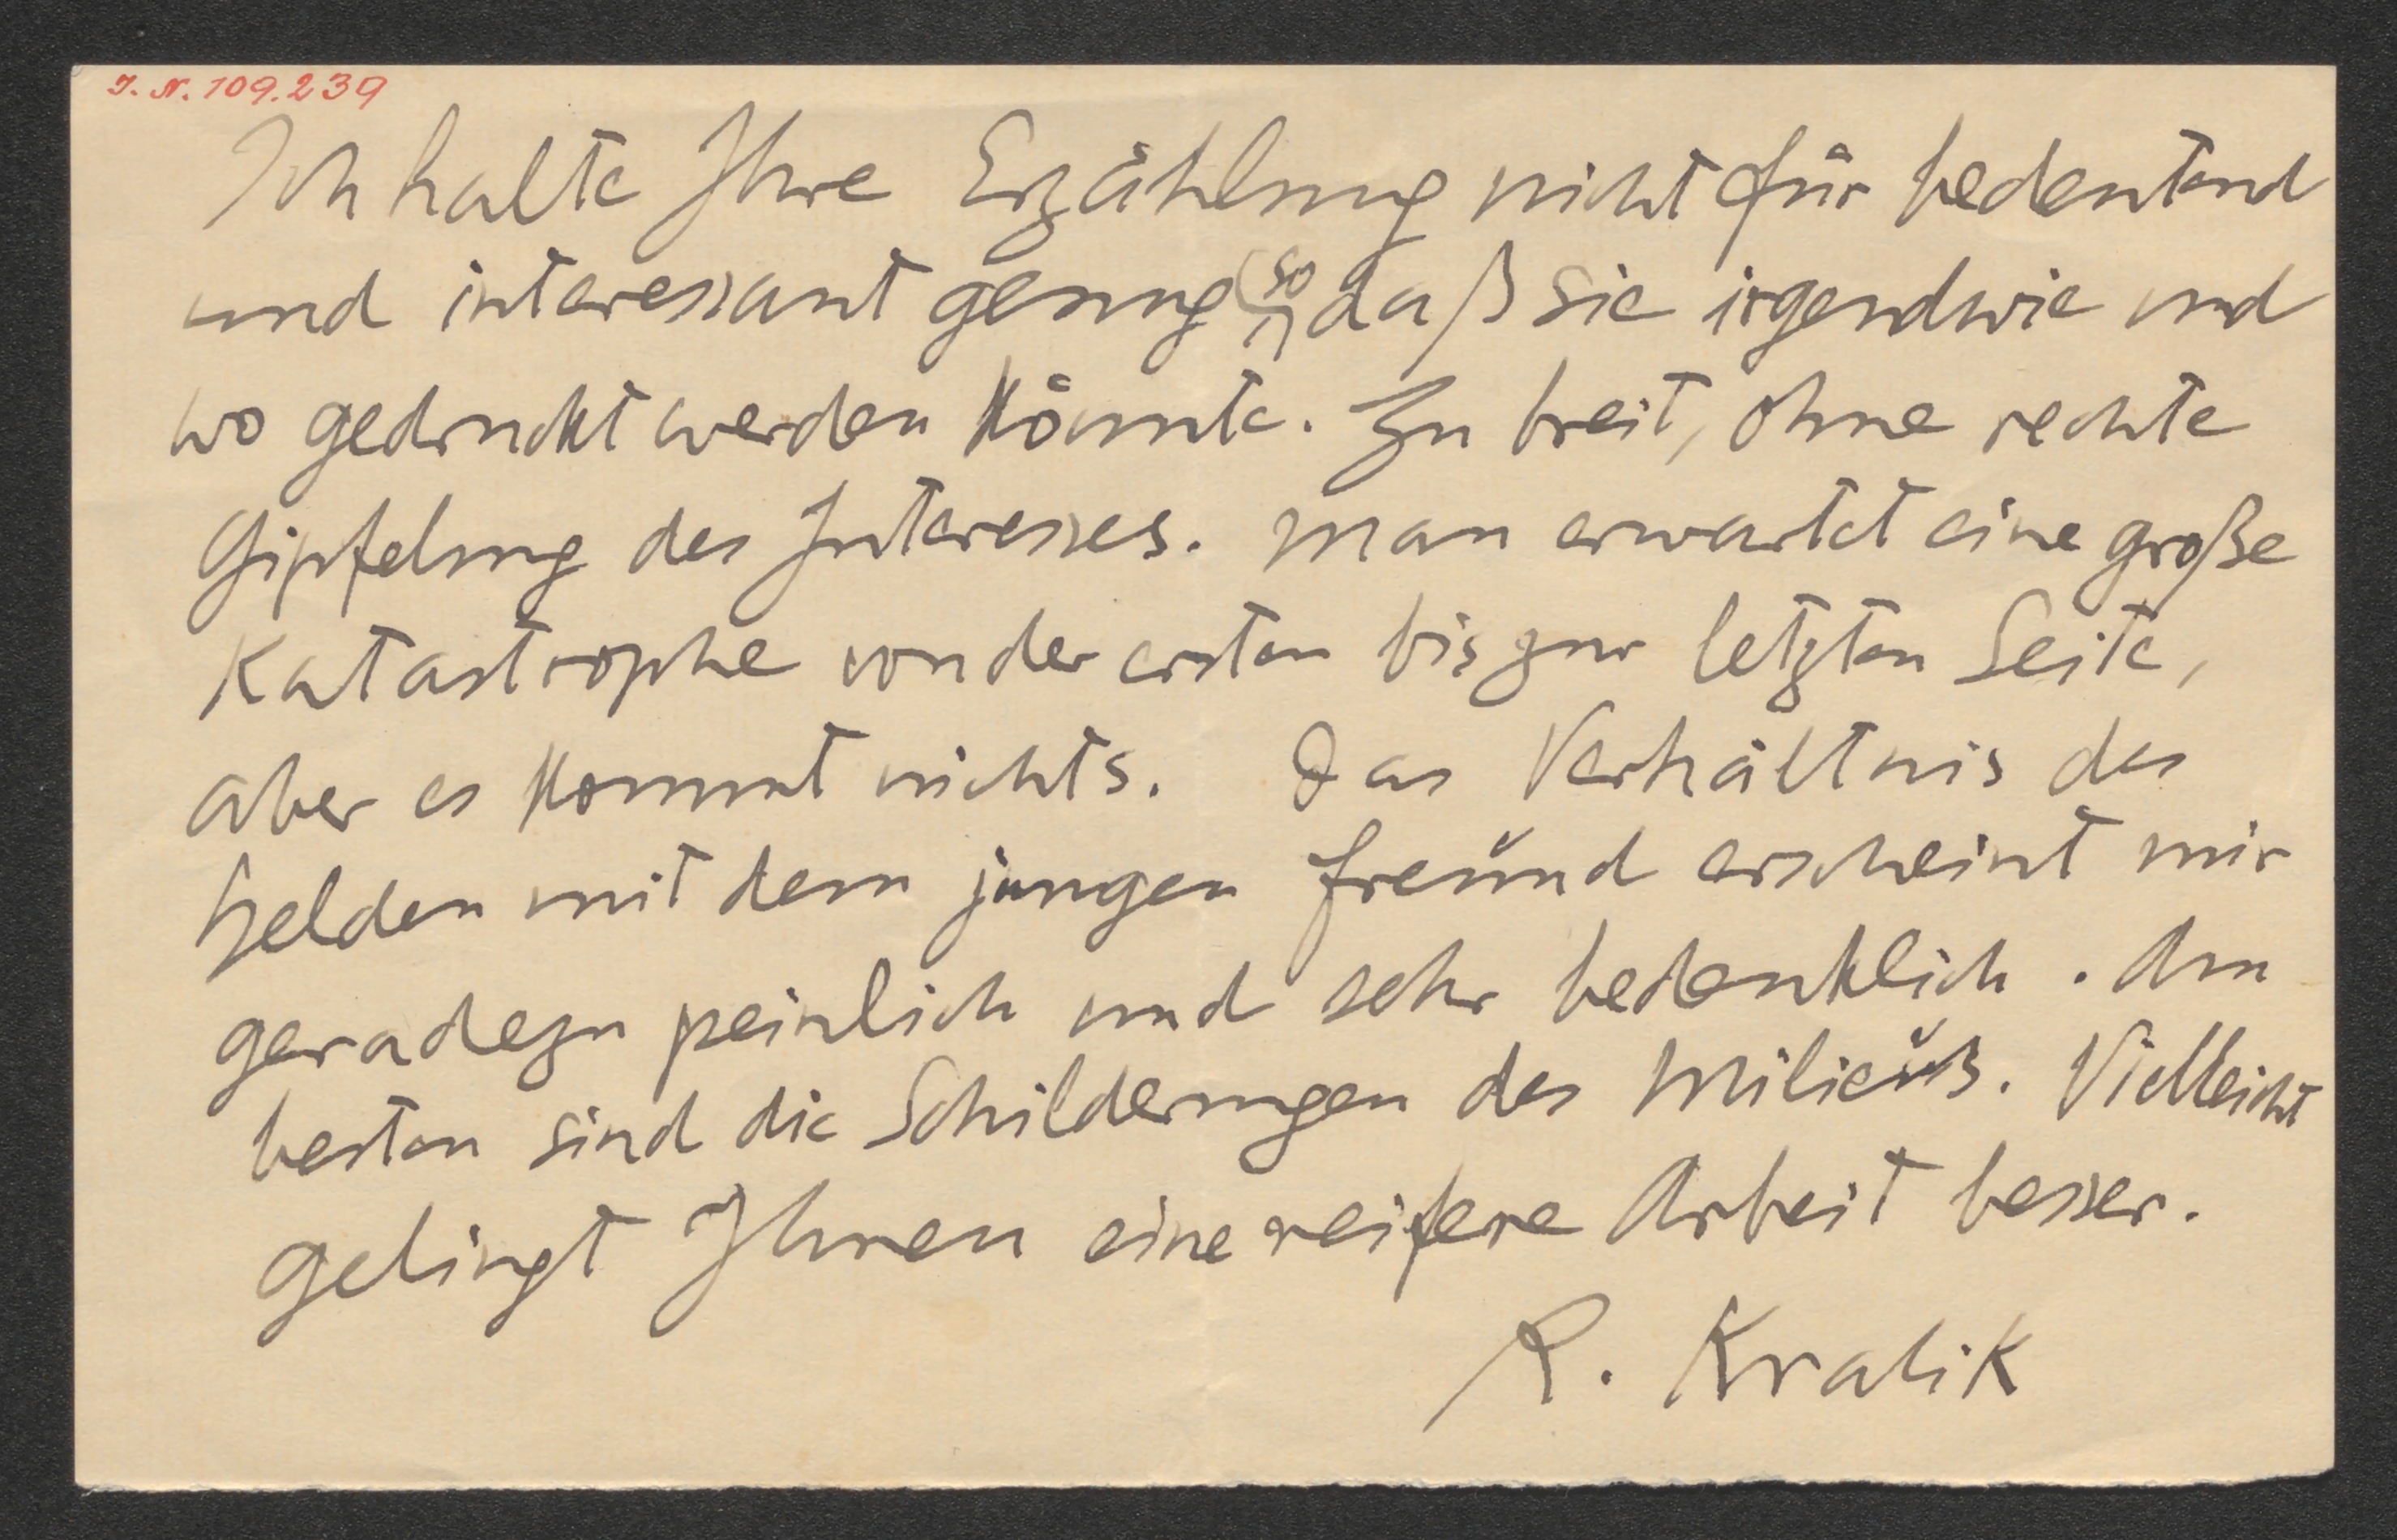 I. N. 109.239
Ich halte Ihre Erzählung nicht für bedeutend
und interessant genug so daß sie irgendwie und
wo gedruckt werden könnte. Zu breit, ohne rechte
Gipfelung des Interesses. Man erwartet eine große
Katastrophe von der ersten bis zur letzten Seite,
aber es kommt nichts. Das Verhältnis des
Helden mit dem jungen Freund erscheint mir
geradezu peinlich und sehr bedenklich. Am
besten sind die Schilderungen des Milieus. Vielleicht
gelingt Ihnen eine reifere Arbeit besser.
R. Kralik